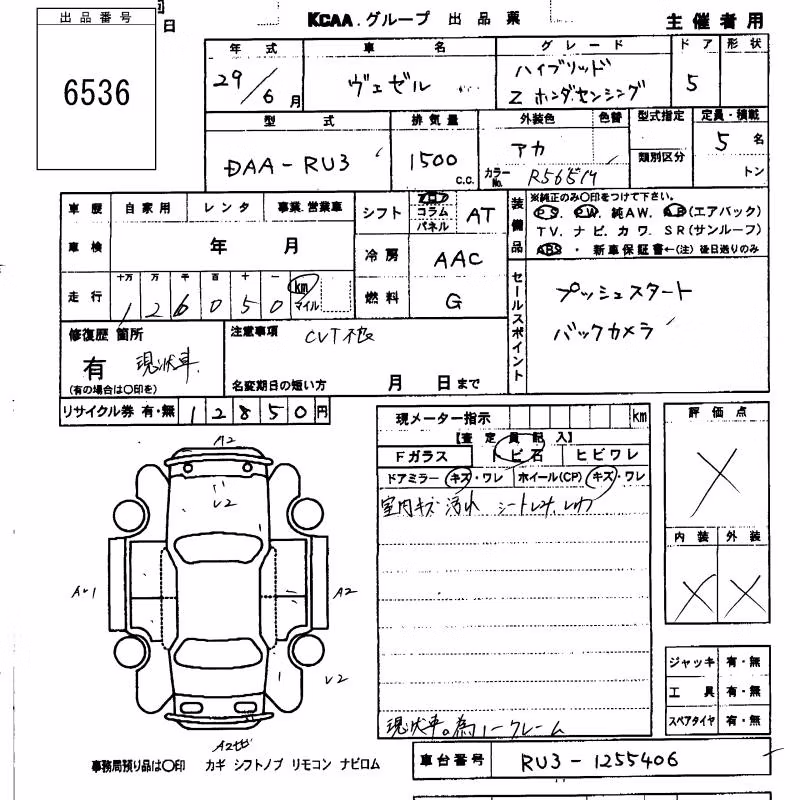 出品番号
6536
日
KCAA.グループ 出品票
主催者用
年式 車名 グレード ドア 形状
29/6月 ヴェゼル ハイブリッド
Z ホンダセンシング 5
型式 排気量 外装色 色替 型式指定 定員・積載
DAA-RU3 1500 c.c. アカ 類別区分 5名
カラーNo. トン
車歴 自家用 レンタ 事業.営業車
シフト フロア コラム パネル AT
装備品 ※純正のみ〇印をつけて下さい。
PS. PW. 純AW. AB(エアバック)
TV. ナビ. カワ. SR(サンルーフ)
ABS・新車保証書←(注)後日送りのみ
車検 年 月
冷房 AAC
走行 十万 万 千 百 十 一
126050 km マイル
燃料 G
セールスポイント
プッシュスタート
バックカメラ
修復歴 箇所
有 現状車
(有の場合は〇印を)
注意事項
CVT不良
名変期日の短い方 月 日まで
リサイクル券 有・無 12850円
現メーター指示 km
【査定員記入】
Fガラス トビ石 ヒビワレ
ドアミラー キズ・ワレ ホイール(CP) キズ・ワレ
室内キズ 汚れ
評価点
X
内装 外装
X X
A2
U2
A2
U2
現状車。為ノークレーム
ジャッキ 有・無
工具 有・無
スペアタイヤ 有・無
事務局預り品は〇印 カギ シフトノブ リモコン ナビロム
車台番号 RU3-1255406